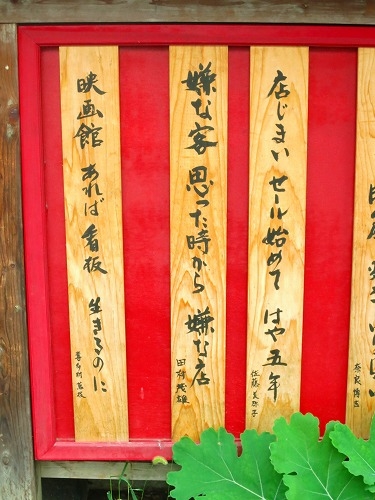 店じまい セール始めて はや五年
佐藤
嫌な客 思った時から 嫌な店
田村 雄
映画館 あれば 看板 生きるのに